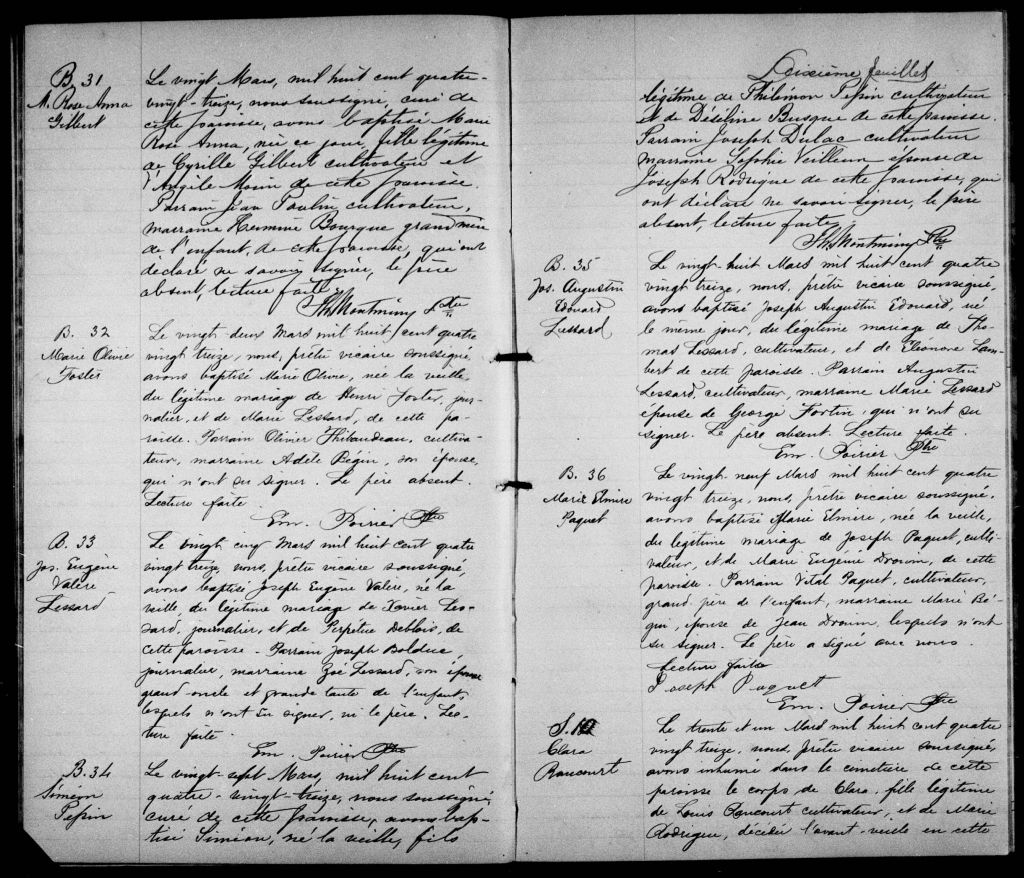 B. 31
M. Rose Anna
Gilbert
Le vingt Mars, mil huit cent quatre-
vingt-treize, nous soussigné, curé de
cette paroisse, avons baptisé Marie
Rose Anna, née ce jour, fille légitime
de Cyrille Gilbert cultivateur et
d'Angèle Morin de cette paroisse.
Parrain Jean Poulin cultivateur,
marraine Hermine Bourque grand'mère
de l'enfant, de cette paroisse, qui ont
déclaré ne savoir signer, le père
absent, lecture faite
Th. Montminy Ptre
B. 32
Marie Olivie
Foster
Le vingt deux Mars mil huit cent quatre
vingt treize, nous, prêtre vicaire soussigné,
avons baptisé Marie Olivie, née la veille,
du légitime mariage de Henri Foster, jour-
nalier, et de Marie Lessard, de cette pa-
roisse. Parrain Olivier Thibaudeau, cultiva-
teur, marraine Adèle Bégin, son épouse,
qui n'ont su signer. Le père absent.
Lecture faite
Em. Poirier Ptre
B. 33
Jos. Eugène
Valère
Lessard
Le vingt cinq Mars mil huit cent quatre
vingt treize, nous, prêtre vicaire soussigné,
avons baptisé Joseph Eugène Valère, né la
veille, du légitime mariage de Xavier Les-
sard, journalier, et de Perpétue Deblois, de
cette paroisse - Parrain Joseph Bolduc,
journalier, marraine Zoé Lessard, son épouse
grand-oncle et grande tante de l'enfant,
lesquels n'ont su signer, ni le père. Lec-
ture faite.
Em. Poirier Ptre
B. 34
Siméon
Pepin
Le vingt-sept Mars, mil huit cent
quatre-vingt-treize, nous soussigné,
curé de cette paroisse, avons bap-
tisé Siméon, né la veille, fils
Dixième feuillet
légitime de Philémon Pepin cultivateur
et de Désiline Busque de cette paroisse.
Parrain Joseph Dulac cultivateur
marraine Sophie Veilleux épouse de
Joseph Rodrigue de cette paroisse, qui
ont déclaré ne savoir signer, le père
absent, lecture faite,
Th. Montminy Ptre
B. 35
Jos. Augustin
Edouard
Lessard
Le vingt-huit Mars mil huit cent quatre
vingt treize, nous, prêtre vicaire soussigné,
avons baptisé Joseph Augustin Edouard, né
le même jour, du légitime mariage de Tho-
mas Lessard, cultivateur, et de Eléonore Lam-
bert de cette paroisse. Parrain Augustin
Lessard, cultivateur, marraine Marie Lessard
épouse de George Fortin, qui n'ont su
signer. Le père absent. Lecture faite.
Em. Poirier Ptre
B. 36
Marie Elmire
Paquet
Le vingt-neuf Mars mil huit cent quatre
vingt treize, nous, prêtre vicaire soussigné,
avons baptisé Marie Elmire, née la veille,
du légitime mariage de Joseph Paquet, culti-
vateur, et de Marie Eugénie Drouin, de cette
paroisse. Parrain Vital Paquet, cultivateur,
grand père de l'enfant, marraine Marie Bé-
gin, épouse de Jean Drouin, lesquels n'ont
su signer. Le père a signé avec nous.
Lecture faite
Joseph Paquet
Em. Poirier Ptre
S. 10
Clara
Rancourt
Le trente et un Mars mil huit cent quatre
vingt treize, nous, prêtre vicaire soussigné,
avons inhumé dans le cimetière de cette
paroisse le corps de Clara, fille légitime
de Louis Rancourt cultivateur, et de Marie
Rodrigue, décédée l'avant-veille en cette